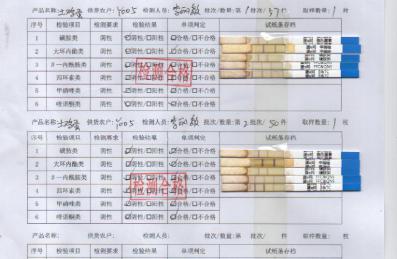 产品名称:土鸡蛋 供货农户:1005 检测人员: 批次/数量:第1批次/37件 取样数量:1枚
序号 检验项目 检测要求 检验结果 单项判定 试纸条存档
1 磺胺类 阴性 ☑阴性/□阳性 ☑合格/□不合格
2 大环内酯类 阴性 ☑阴性/□阳性 ☑合格/□不合格
3 β-内酰胺类 阴性 ☑阴性/□阳性 ☑合格/□不合格
4 四环素类 阴性 ☑阴性/□阳性 ☑合格/□不合格
5 甲硝唑类 阴性 ☑阴性/□阳性 ☑合格/□不合格
6 喹诺酮类 阴性 ☑阴性/□阳性 ☑合格/□不合格
检测合格
产品名称:土鸡蛋 供货农户:1005 检测人员: 批次/数量:第2批次/50件 取样数量:1枚
序号 检验项目 检测要求 检验结果 单项判定 试纸条存档
1 磺胺类 阴性 ☑阴性/□阳性 ☑合格/□不合格
2 大环内酯类 阴性 ☑阴性/□阳性 ☑合格/□不合格
3 β-内酰胺类 阴性 ☑阴性/□阳性 ☑合格/□不合格
4 四环素类 阴性 ☑阴性/□阳性 ☑合格/□不合格
5 甲硝唑类 阴性 ☑阴性/□阳性 ☑合格/□不合格
6 喹诺酮类 阴性 ☑阴性/□阳性 ☑合格/□不合格
检测合格
产品名称: 供货农户: 检测人员: 批次/数量:第 批次/ 件 取样数量: 枚
序号 检验项目 检测要求 检验结果 单项判定 试纸条存档